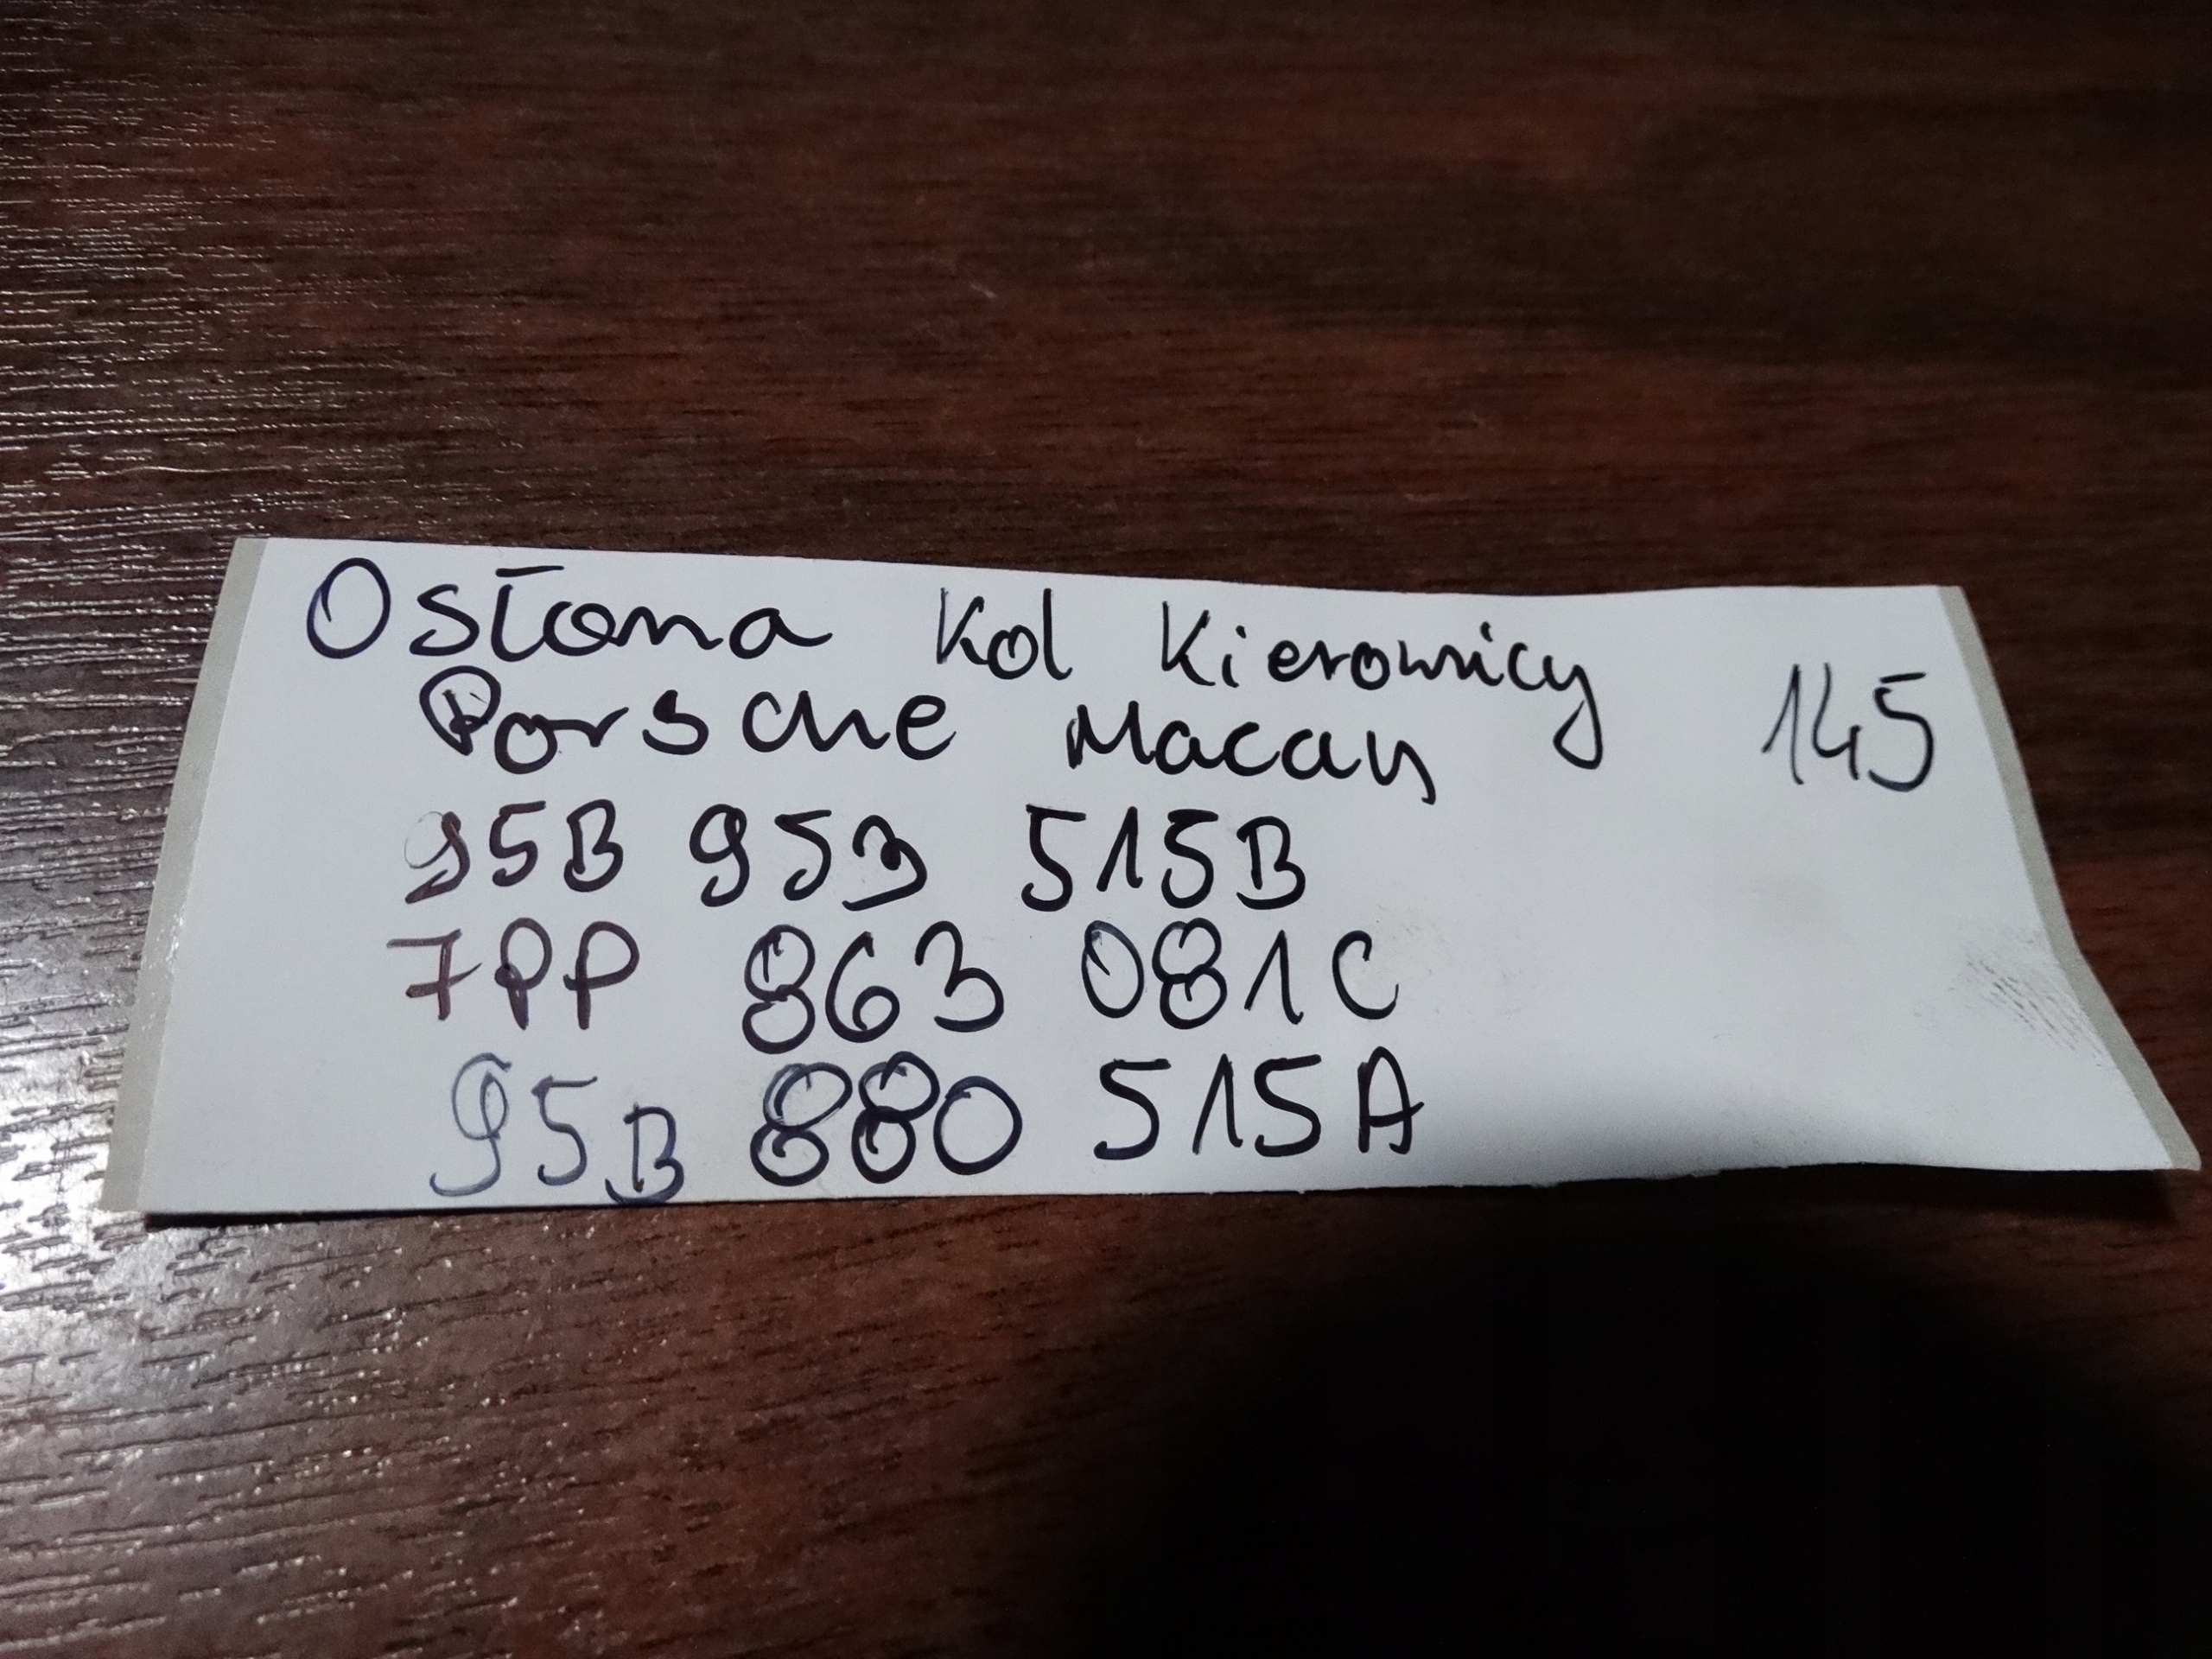 Osłona Kol Kierownicy
Porsche Macan 145
95B 953 515B
7PP 863 081C
95B 880 515A